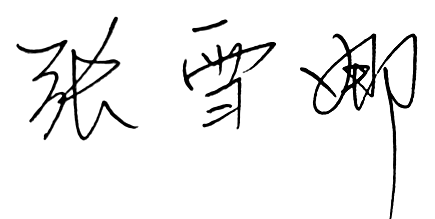 张雪娜